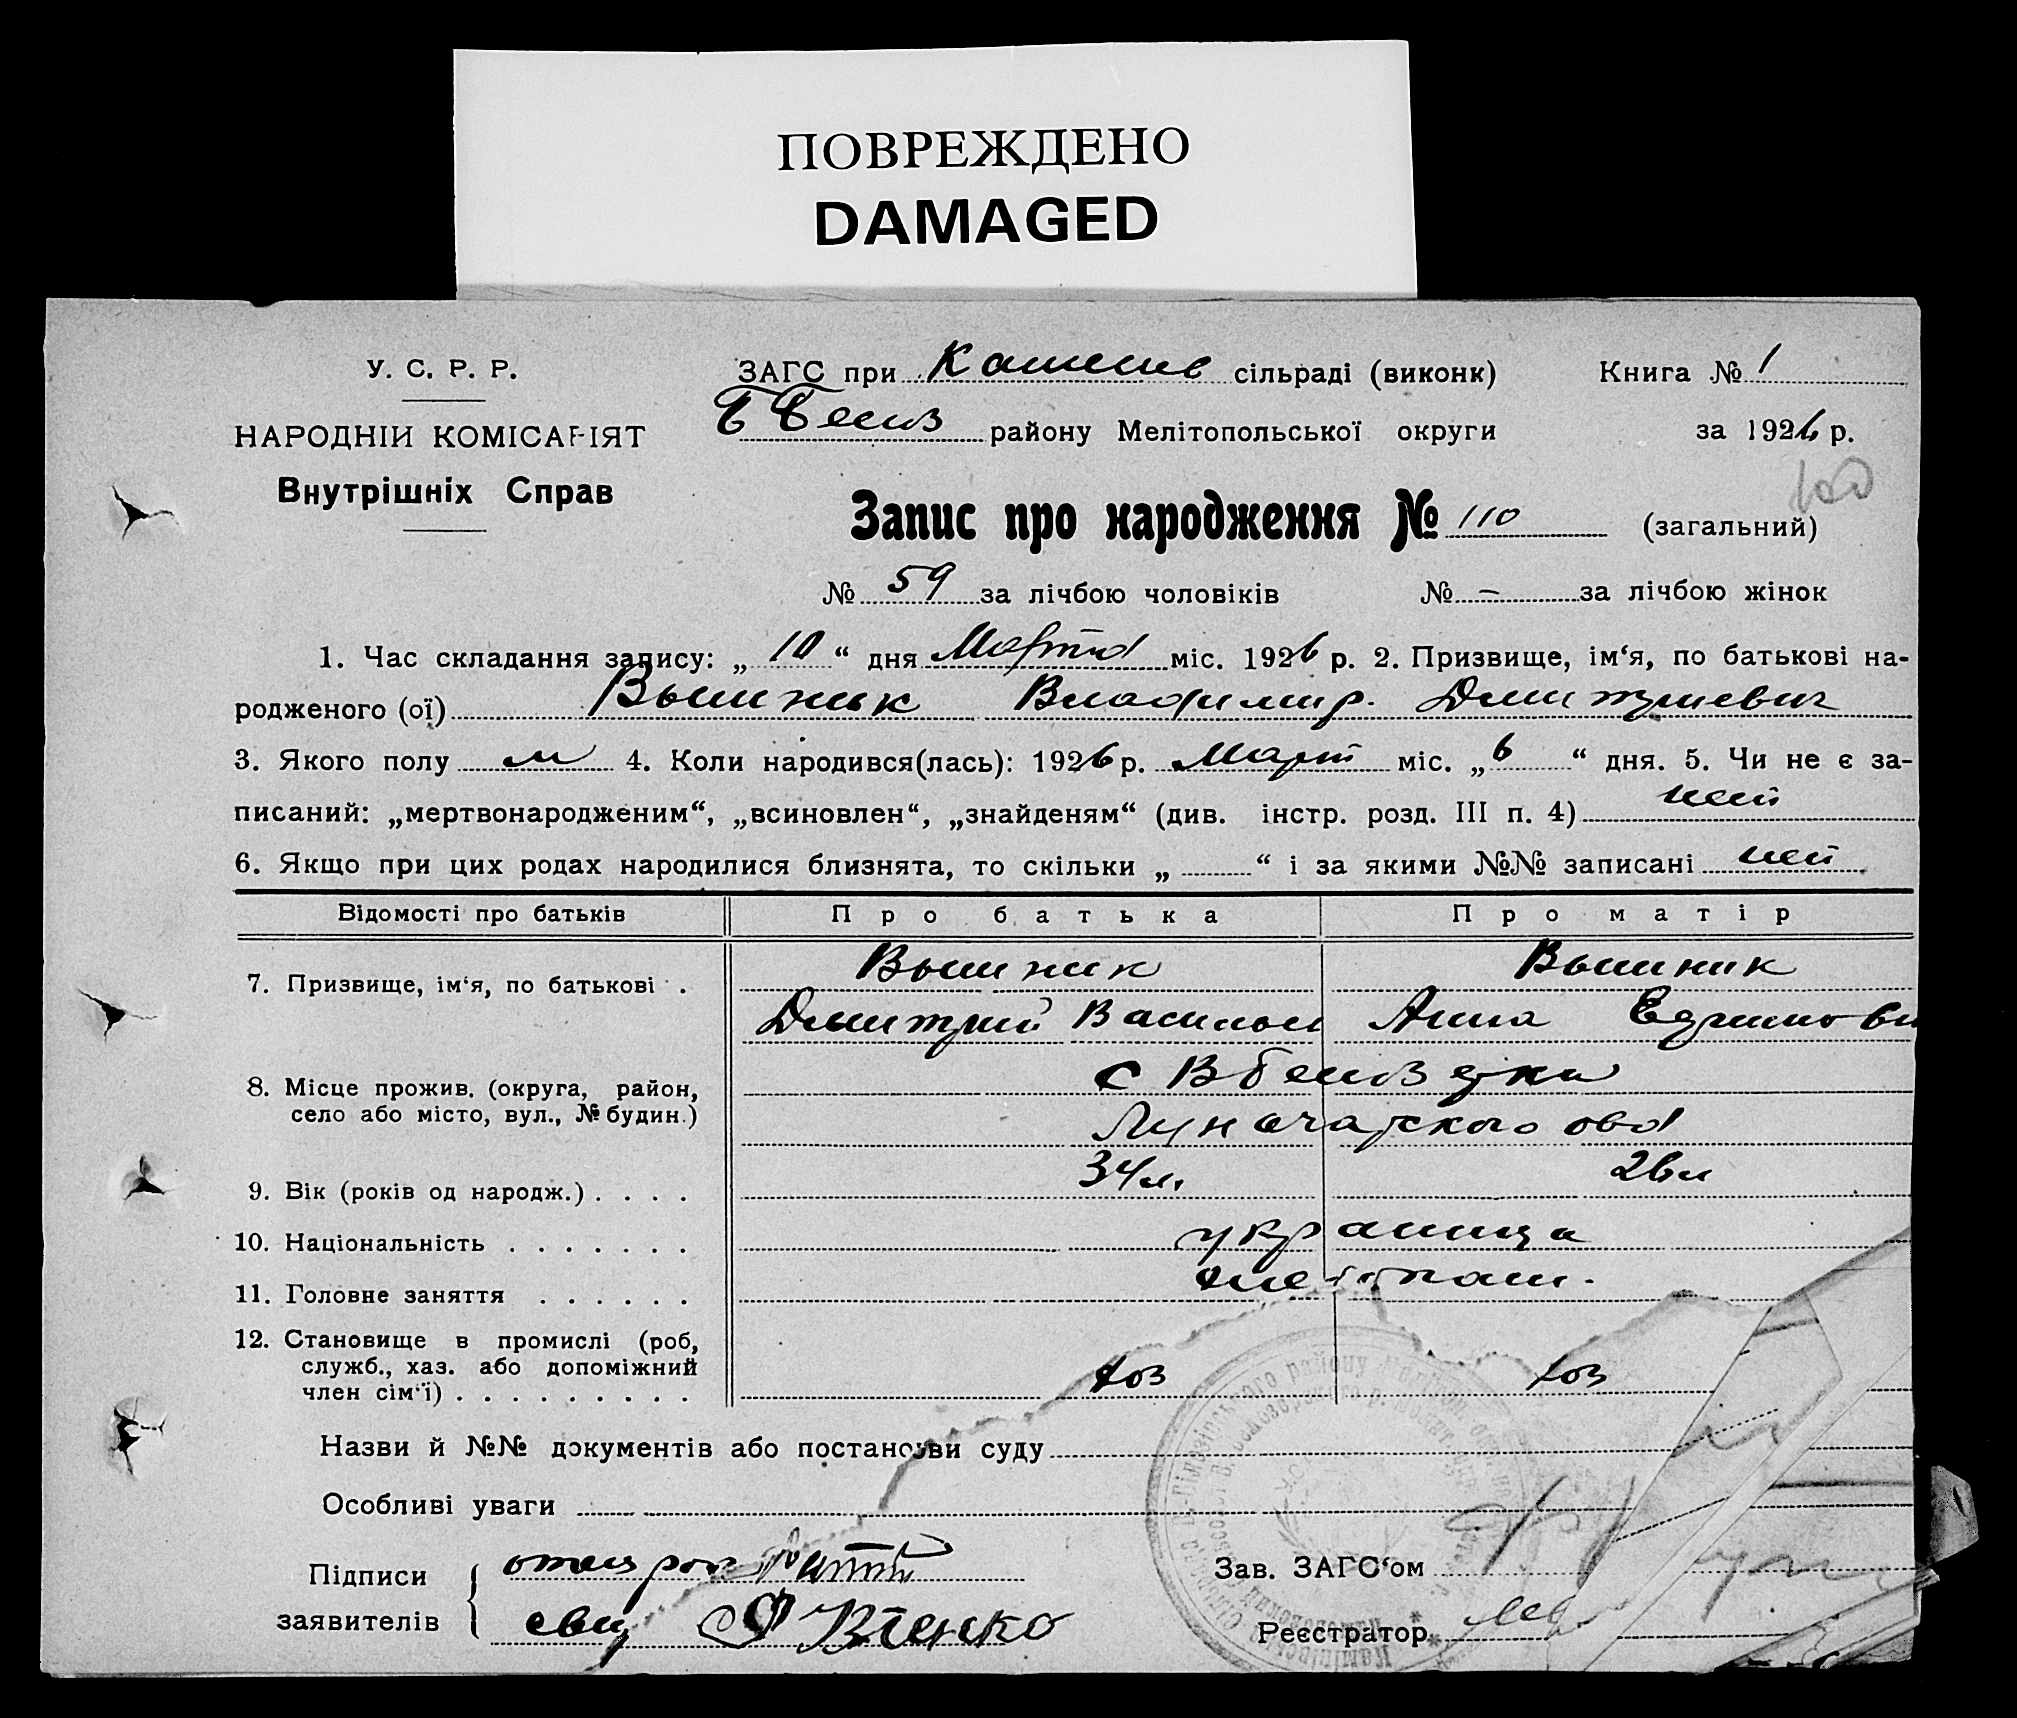 ПОВРЕЖДЕНО
DAMAGED
У. С. Р. Р.
ЗАГС при сільраді (виконк)
Книга № 1
району Мелітопольської округи
за 1926 р.
НАРОДНІЙ КОМІСАРІЯТ
Внутрішніх Справ
100
Запис про народження № 110 (загальний)
№ 59 за лічбою чоловіків № - за лічбою жінок
1. Час складання запису: „ 10 “ дня Марта міс. 1926 р. 2. Призвище, ім‘я, по батькові на-
родженого (ої) Вышник Владимир. Дмитриевич
3. Якого полу м 4. Коли народився(лась): 1926 р. Март міс. „ 6 “ дня. 5. Чи не є за-
писаний: „мертвонародженим“, „всиновлен“, „знайденям“ (див. інстр. розд. III п. 4) нет
6. Якщо при цих родах народилися близнята, то скільки „ “ і за якими №№ записані нет
Відомості про батьків Про батька Про матір
7. Призвище, ім‘я, по батькові . Вышник Вышник
Дмитрий Васильев Анна
8. Місце прожив. (округа, район,
село або місто, вул., № будин.)
9. Вік (років од народж.) . . . . 34 л. 26 л
10. Національність . . . . . . . украинца
11. Головне заняття . . . . . .
12. Становище в промислі (роб,
служб., хаз. або допоміжний
член сім‘ї) . . . . . . . . . хоз хоз
Назви й №№ документів або постанови суду
Особливі уваги
Підписи
заявителів
отец
свид
Зав. ЗАГС‘ом
Реєстратор